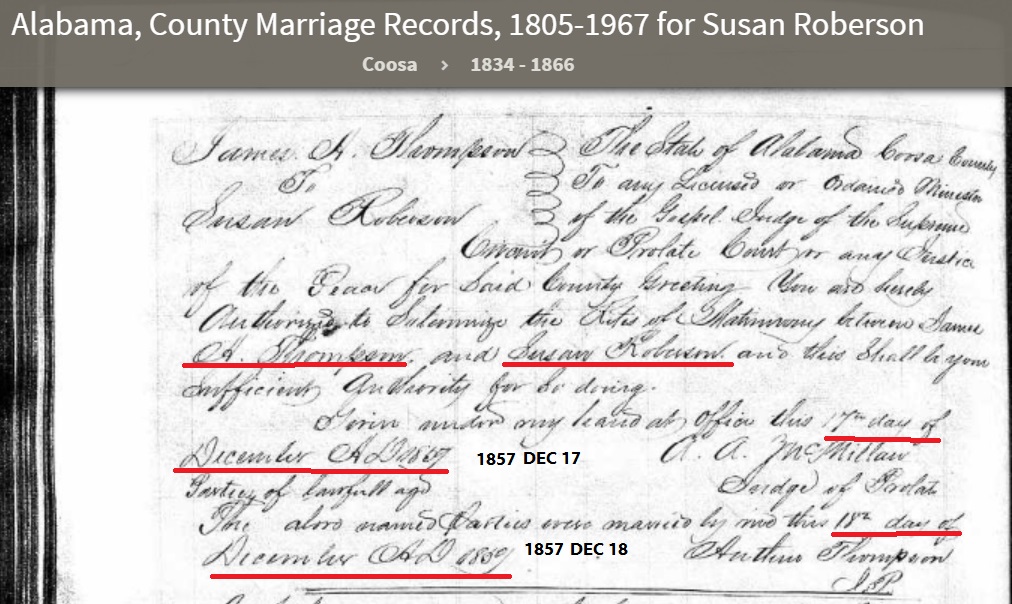 Alabama, County Marriage Records, 1805-1967 for Susan Roberson
Coosa > 1834 - 1866
James A. Thompson
To
Susan Roberson
The State of Alabama Coosa County
To any Licensed or Ordained Minister
of the Gospel. Judge of the Supreme
Circuit or Probate Court or any Justice
of the Peace for Said County Greeting You are hereby
Authorized to Solemnize the Rites of Matrimony between James
A. Thompson. and Susan Roberson. and this Shall be your
Sufficient Authority for So doing.
Given under my hand at office this 17th day of
December AD 1857
1857 DEC 17
A. A. McMillan
Parties of lawfull age
Judge of Probate
The above named Parties were married by me this 18th day of
December AD 1857
1857 DEC 18
Thompson
J.P.